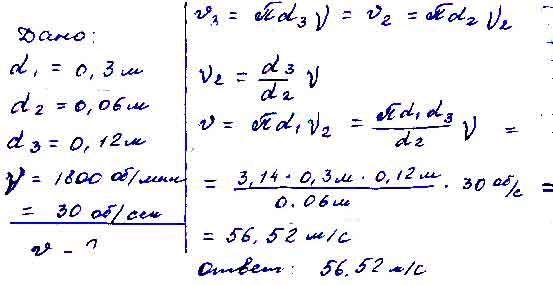 Дано:
d₁ = 0,3 м
d₂ = 0,06 м
d₃ = 0,12 м
ν = 1800 об/мин
= 30 об/сек
v - ?
v₃ = πd₃ ν = v₂ = πd₂ ν₂
ν₂ = d₃/d₂ ν
v = πd₁ν₂ = πd₁d₃/d₂ ν =
= 3,14 · 0,3 м · 0,12 м/0.06 м · 30 об/с =
= 56,52 м/с
ответ: 56,52 м/с